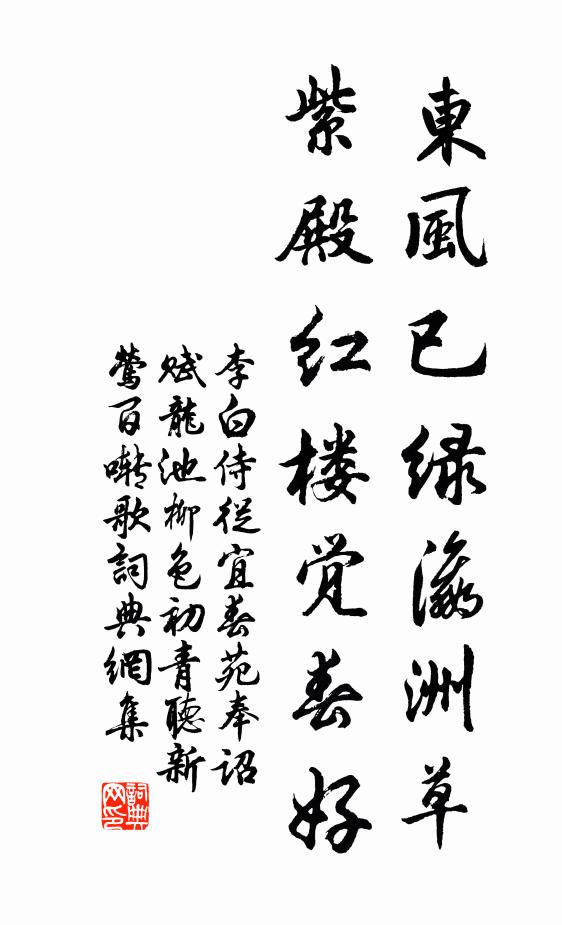 東風已绿瀛洲草
紫殿红楼觉春好
李白侍從宜春苑奉詔
赋龍池柳色初青聽新
鶯百囀歌詞典網集
詞典网印